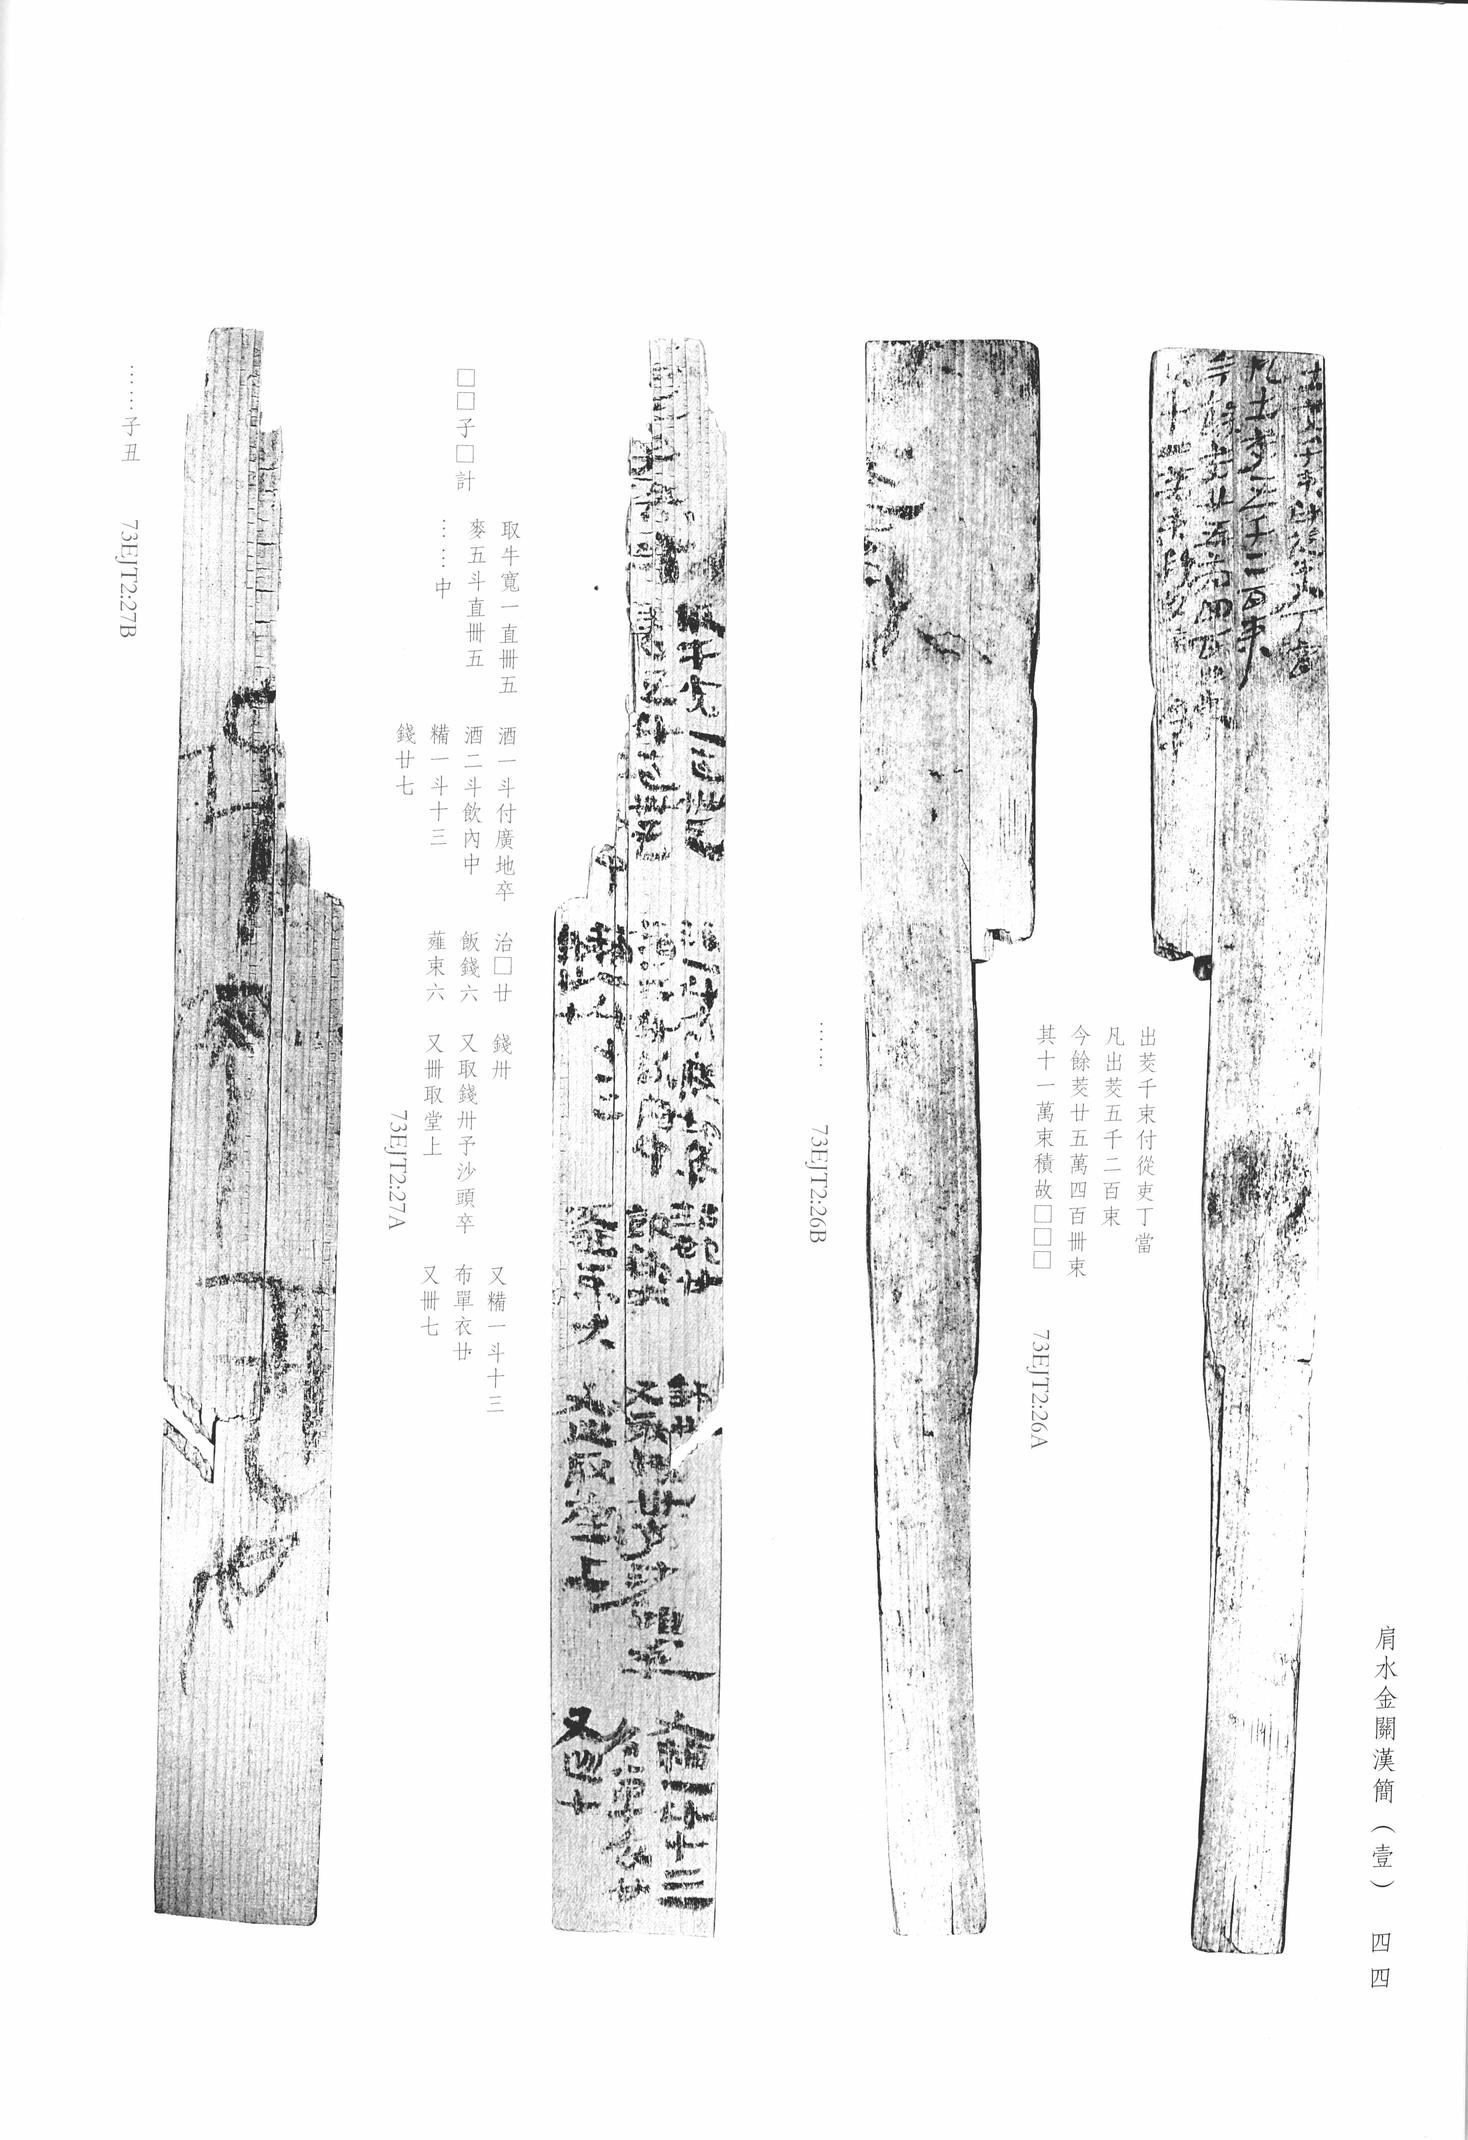 肩水金關漢簡（壹）　四四
出茭千束付從吏丁當
凡出茭五千二百束
今餘茭廿五萬四百卌束
其十一萬束積故□□□
73EJT2:26A
……
73EJT2:26B
□□子□計
取牛寬一直卌五
麥五斗直卌五
……中
酒一斗付廣地卒
酒二斗飲內中
糒一斗十三
錢廿七
治□廿
飯錢六
薤束六
錢卅
又取錢卅予沙頭卒
又卌取堂上
又糒一斗十三
布單衣廿
又卌七
73EJT2:27A
……子丑
73EJT2:27B